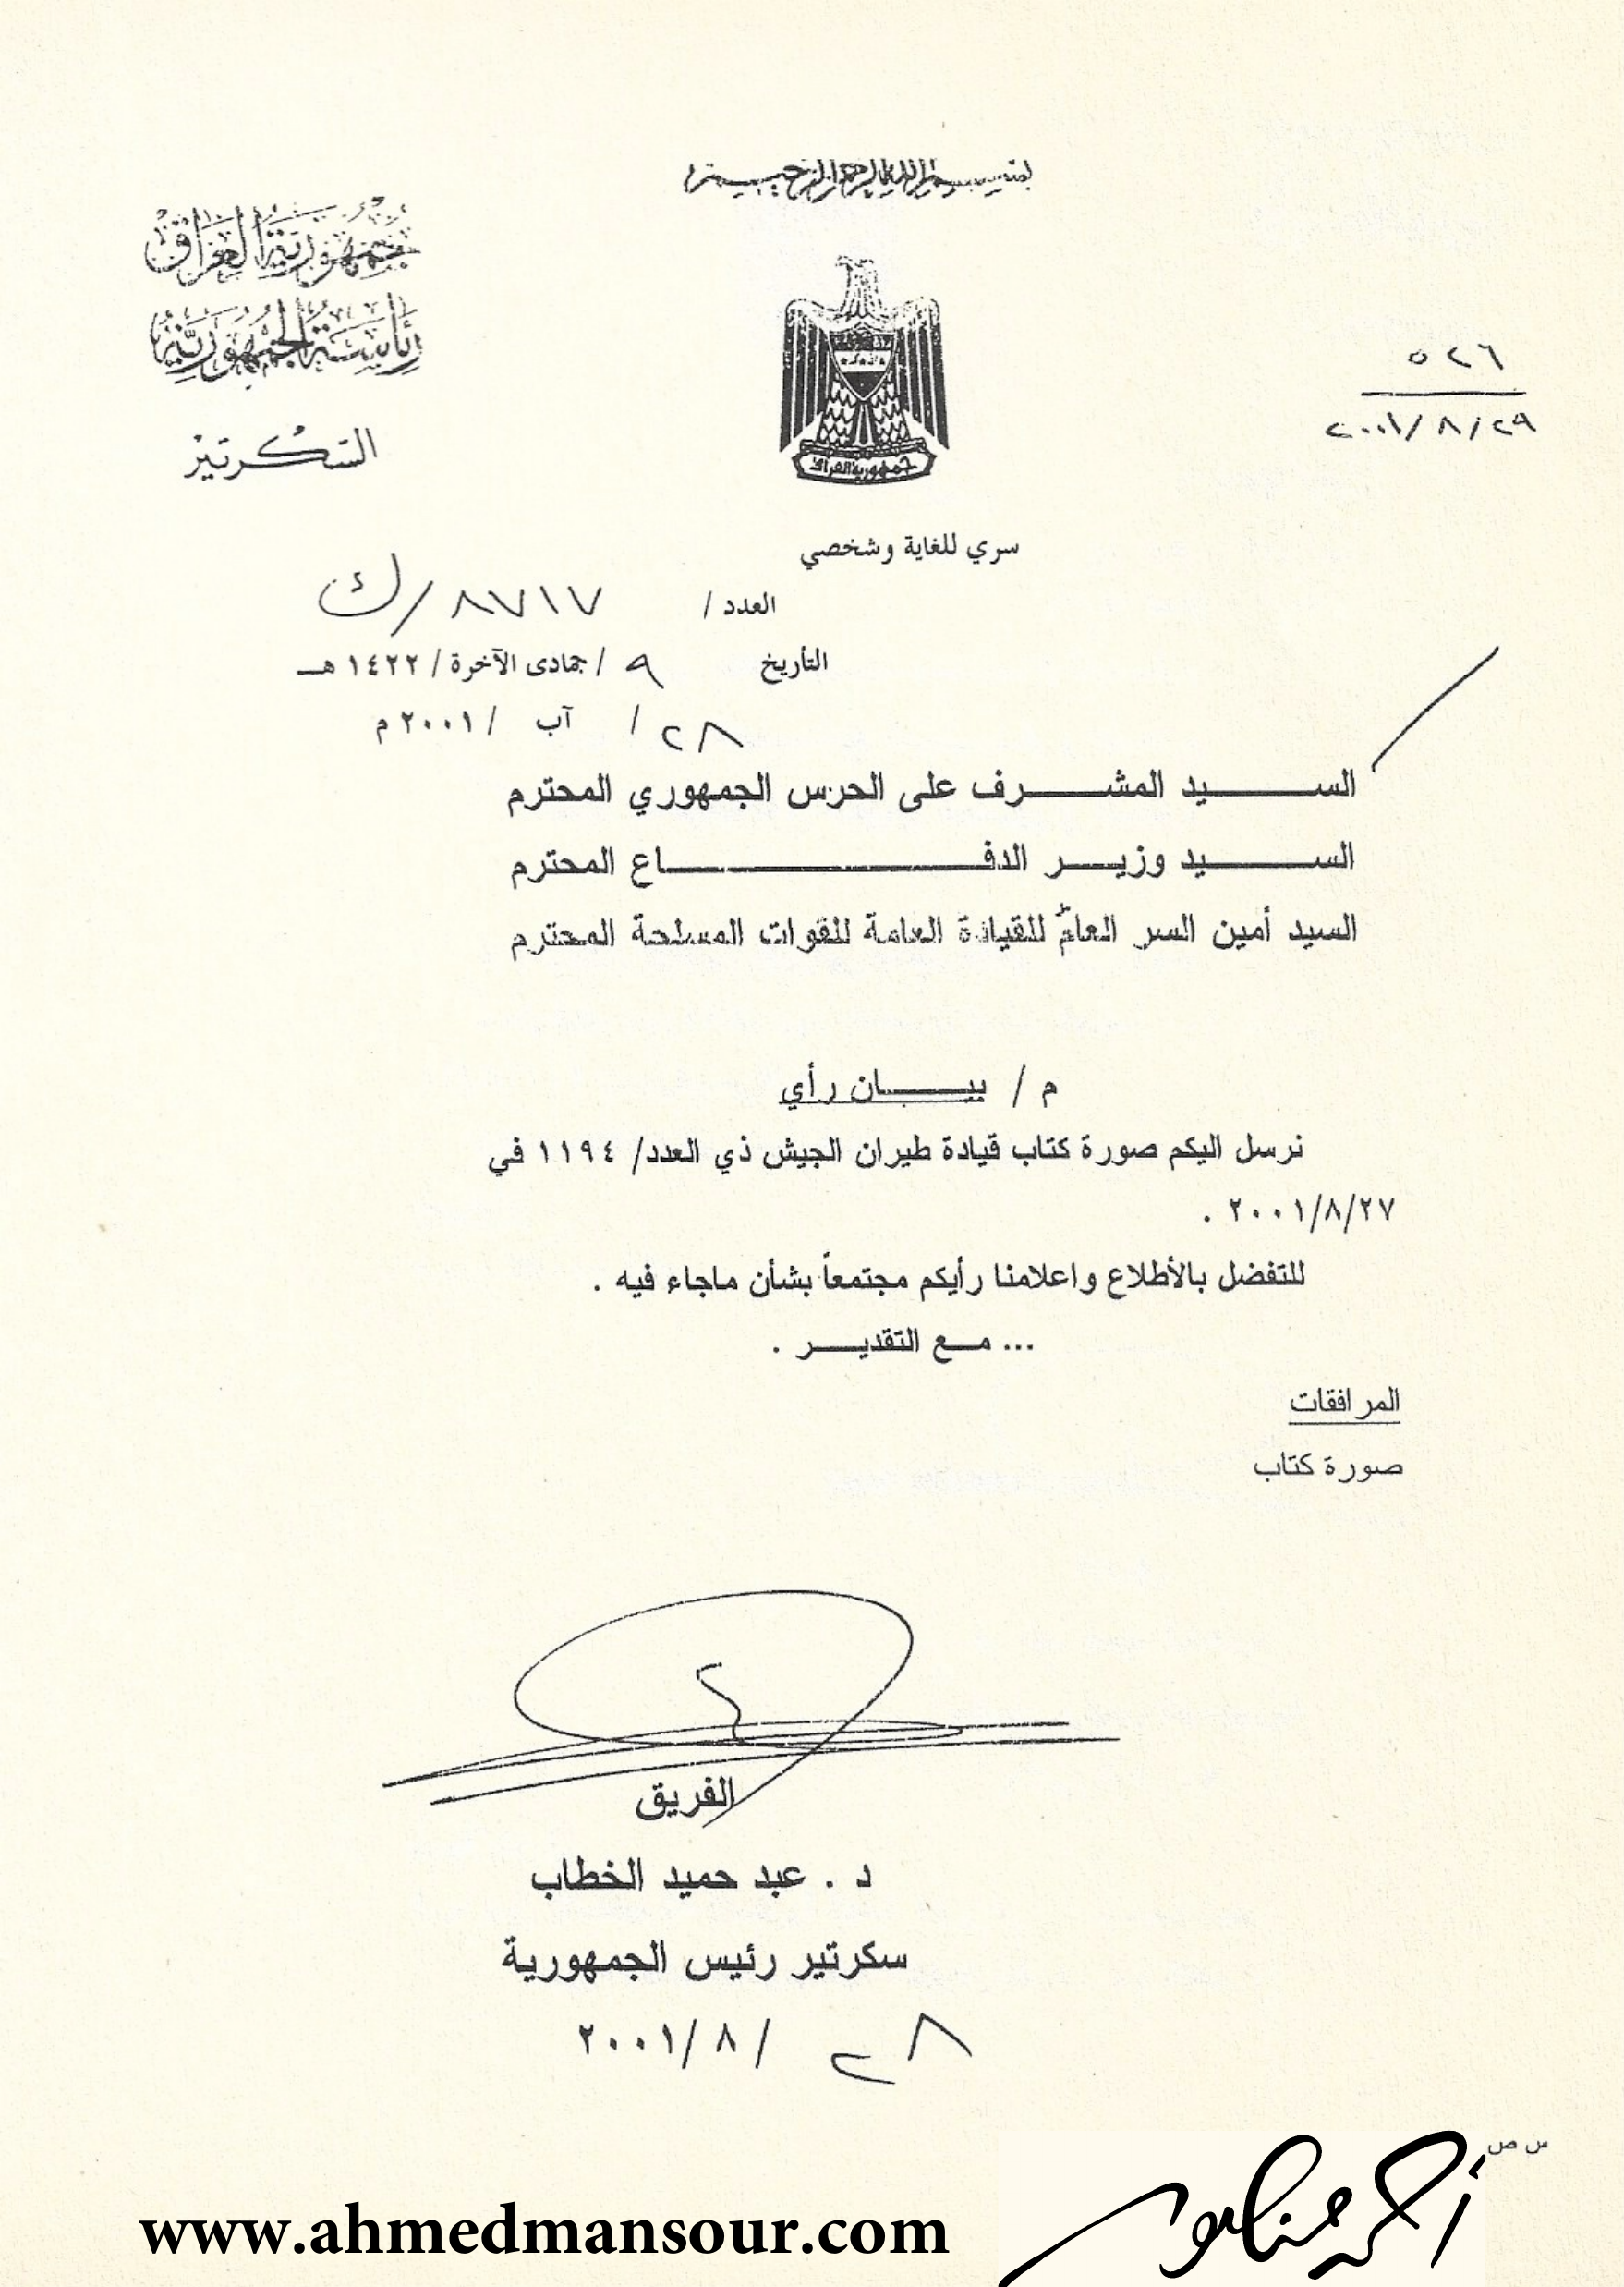 بسم الله الرحمن الرحيم
جمهورية العراق
رئاسة الجمهورية
السكرتير
جمهورية العراق
٥٢٦
٢٠٠١/٨/٢٩
سري للغاية وشخصي
العدد / ٨٧١٧/ك
التأريخ ٩ / جمادى الآخرة / ١٤٢٢ هـ
٢٨ / آب / ٢٠٠١ م
السيد المشرف على الحرس الجمهوري المحترم
السيد وزير الدفاع المحترم
السيد أمين السر العام للقيادة العامة للقوات المسلحة المحترم
م / بيان رأي
نرسل اليكم صورة كتاب قيادة طيران الجيش ذي العدد/ ١١٩٤ في
٢٠٠١/٨/٢٧ .
للتفضل بالأطلاع واعلامنا رأيكم مجتمعاً بشأن ماجاء فيه .
... مع التقدير .
المرافقات
صورة كتاب
الفريق
د . عبد حميد الخطاب
سكرتير رئيس الجمهورية
٢٨ /٨ /٢٠٠١
س ص
أحمد منصور
www.ahmedmansour.com